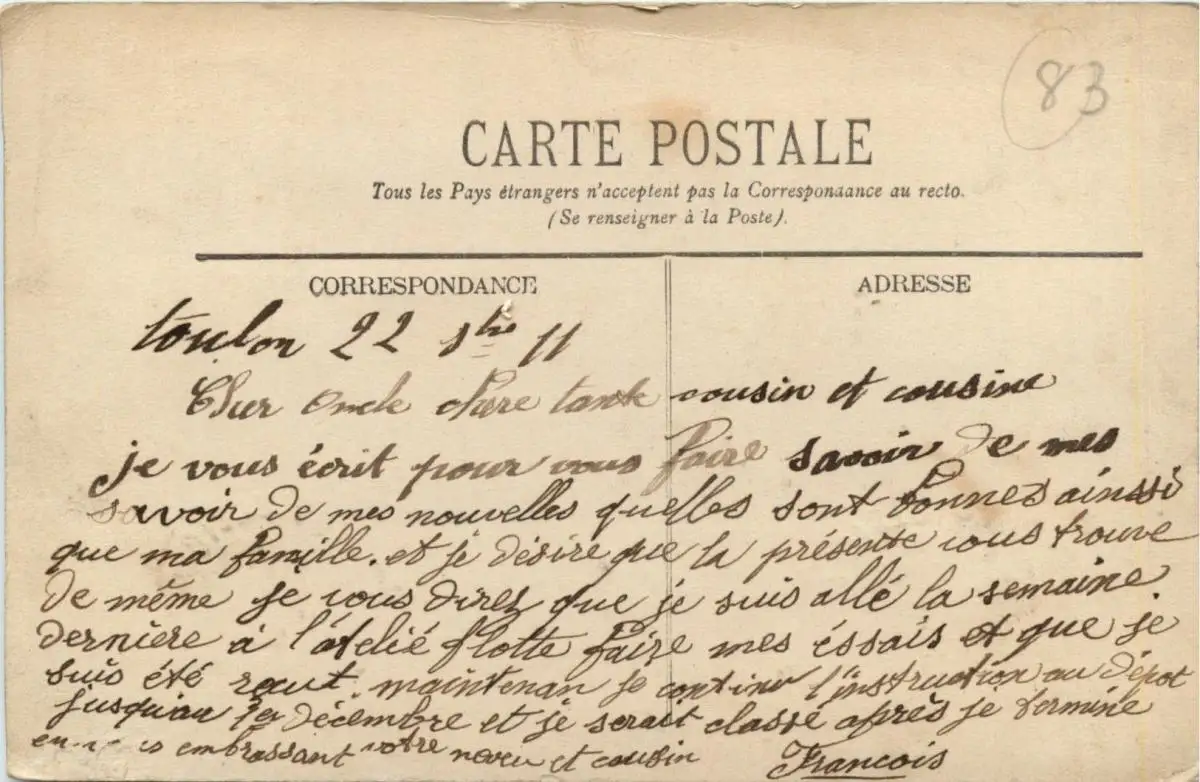 83
CARTE POSTALE
Tous les Pays étrangers n'acceptent pas la Correspondance au recto.
(Se renseigner à la Poste).
CORRESPONDANCE
ADRESSE
toulon 22 11
Cher Oncle chère tante cousin et cousine
je vous écrit pour vous faire savoir de mes
savoir de mes nouvelles quelles sont bonnes ainssi
que ma famille. et je désire que la présente vous trouve
de même je vous direz que je suis allé la semaine
dernière à l'atelié flotte faire mes éssais et que je
suis été reçut. maintenan je continu l'instruction au dépot
jusquiau 1er décembre et je serait classé après je termine
en embrassant votre neveu et cousin François